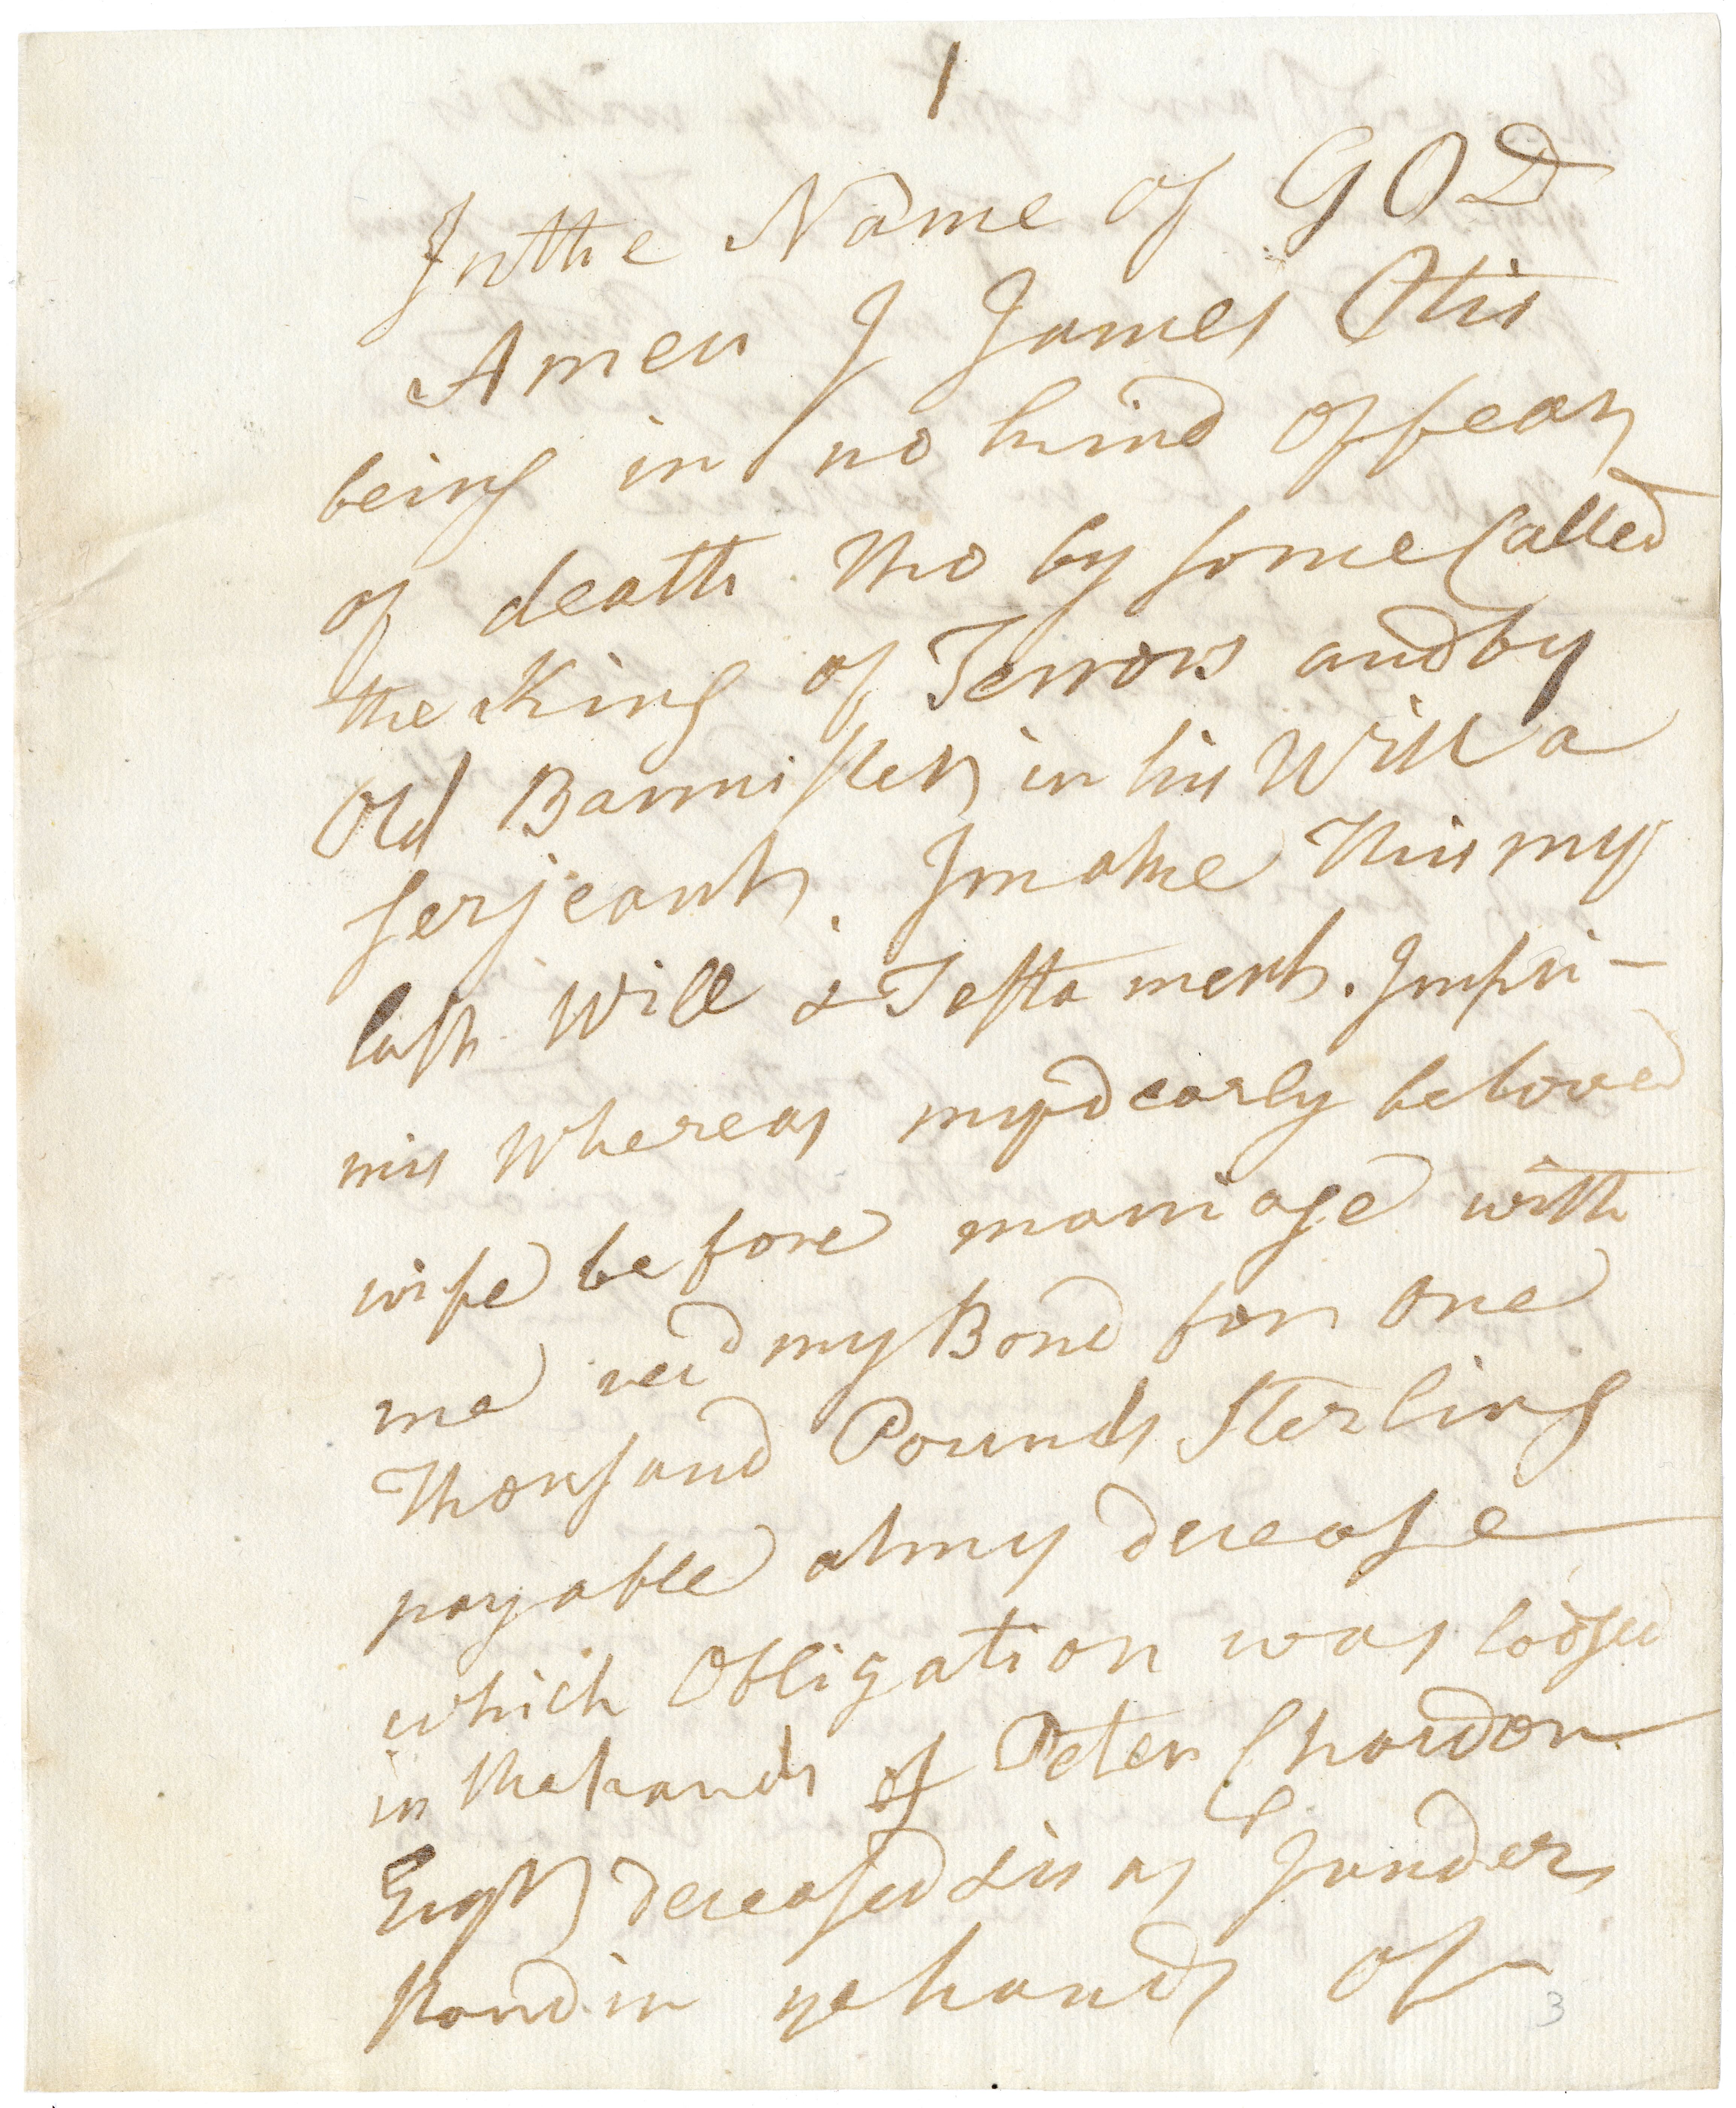 1
In the Name of GOD
Amen I James Otis
being in no kind of fear
of death tho by some Called
the King of Terrors and by
Old Bannister in his Will a
serjeant. I make this my
last Will & Testament. Impri-
mis Whereas my dearly beloved
wife before marriage with
me recd my Bond for one
Thousand Pounds Sterling
payable at my decease
which Obligation was lodged
in the hands of Peter Chardon
Esqr deceased & is as I under
stand in ye hands of
3